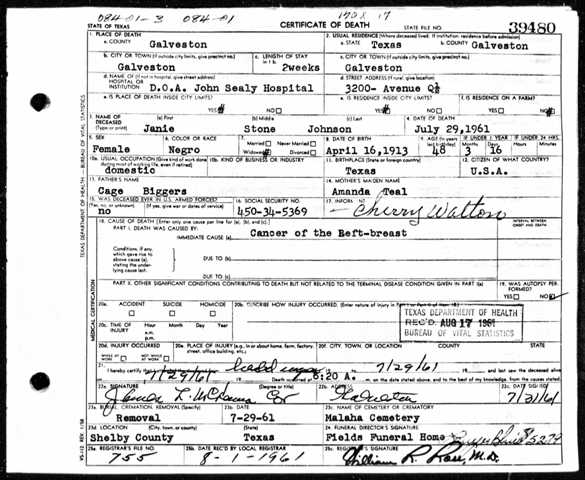 084-01-3 084-01
1708 17
STATE OF TEXAS
CERTIFICATE OF DEATH
STATE FILE NO.
39480
1. PLACE OF DEATH
a. COUNTY
Galveston
2. USUAL RESIDENCE (Where deceased lived. If institution: residence before admission)
a. STATE
Texas
b. COUNTY
Galveston
b. CITY OR TOWN (If outside city limits, give precinct no.)
Galveston
c. LENGTH OF STAY in 1 b.
2weeks
c. CITY OR TOWN (If outside city limits, give precinct no.)
Galveston
d. NAME OF (If not in hospital, give street address)
HOSPITAL OR
INSTITUTION
D.O.A. John Sealy Hospital
d. STREET ADDRESS (If rural, give location)
3200- Avenue Q½
e. IS PLACE OF DEATH INSIDE CITY LIMITS?
YES NO
e. IS RESIDENCE INSIDE CITY LIMITS?
YES NO
f. IS RESIDENCE ON A FARM?
YES NO
3. NAME OF DECEASED
(Type or print)
(a) First
Janie
(b) Middle
Stone
(c) Last
Johnson
4. DATE OF DEATH
July 29,1961
5. SEX
Female
6. COLOR OR RACE
Negro
7.
Married Never Married
Widowed Divorced
8. DATE OF BIRTH
April 16,1913
9. AGE (In years last birthday)
48
IF UNDER 1 YEAR
3 16
IF UNDER 24 HRS.
10a. USUAL OCCUPATION (Give kind of work done during most of working life, even if retired)
domestic
10b. KIND OF BUSINESS OR INDUSTRY
11. BIRTHPLACE (State or foreign country)
Texas
12. CITIZEN OF WHAT COUNTRY?
U.S.A.
13. FATHER'S NAME
Cage Biggers
14. MOTHER'S MAIDEN NAME
Amanda Teal
15. WAS DECEASED EVER IN U.S. ARMED FORCES?
(Yes, no, or unknown) (If yes, give war or dates of service)
no
16. SOCIAL SECURITY NO.
450-34-5369
17. INFORMANT
Cherry Walton
18. CAUSE OF DEATH (Enter only one cause per line for (a), (b), and (c).)
INTERVAL BETWEEN ONSET AND DEATH
PART I. DEATH WAS CAUSED BY:
IMMEDIATE CAUSE (a)
Cancer of the Beft-breast
Conditions, if any, which gave rise to above cause (a), stating the underlying cause last.
DUE TO (b)
DUE TO (c)
PART II. OTHER SIGNIFICANT CONDITIONS CONTRIBUTING TO DEATH BUT NOT RELATED TO THE TERMINAL DISEASE CONDITION GIVEN IN PART I(a)
19. WAS AUTOPSY PERFORMED?
YES NO
20a. ACCIDENT SUICIDE HOMICIDE
20b. DESCRIBE HOW INJURY OCCURRED.
TEXAS DEPARTMENT OF HEALTH
REC'D AUG 17 1961
BUREAU OF VITAL STATISTICS
20c. TIME OF INJURY
Hour Month Day Year
a.m.
p.m.
20d. INJURY OCCURRED
WHILE AT WORK NOT WHILE AT WORK
20e. PLACE OF INJURY (e.g., in or about home, farm, factory, street, office building, etc.)
20f. CITY, TOWN, OR LOCATION
COUNTY
STATE
21. I hereby certify that
7/29/61
7/29/61
and last saw the deceased alive
Death occurred at 8:20 A. m. on the date stated above, and to the best of my knowledge, from the causes stated.
22a. SIGNATURE
(Degree or title)
22b. ADDRESS
Galveston
22c. DATE SIGNED
7/31/61
23a. BURIAL, CREMATION, REMOVAL (Specify)
Removal
23b. DATE
7-29-61
23c. NAME OF CEMETERY OR CREMATORY
Malaha Cemetery
23d. LOCATION (City, town, or county) (State)
Shelby County Texas
24. FUNERAL DIRECTOR'S SIGNATURE
Fields Funeral Home
5279
25a. REGISTRAR'S FILE NO.
755
25b. DATE REC'D BY LOCAL REGISTRAR
8-1-1961
25c. REGISTRAR'S SIGNATURE
William R. Ross, M.D.
TEXAS DEPARTMENT OF HEALTH - BUREAU OF VITAL STATISTICS
MEDICAL CERTIFICATION
VS-112 REV. 1/58